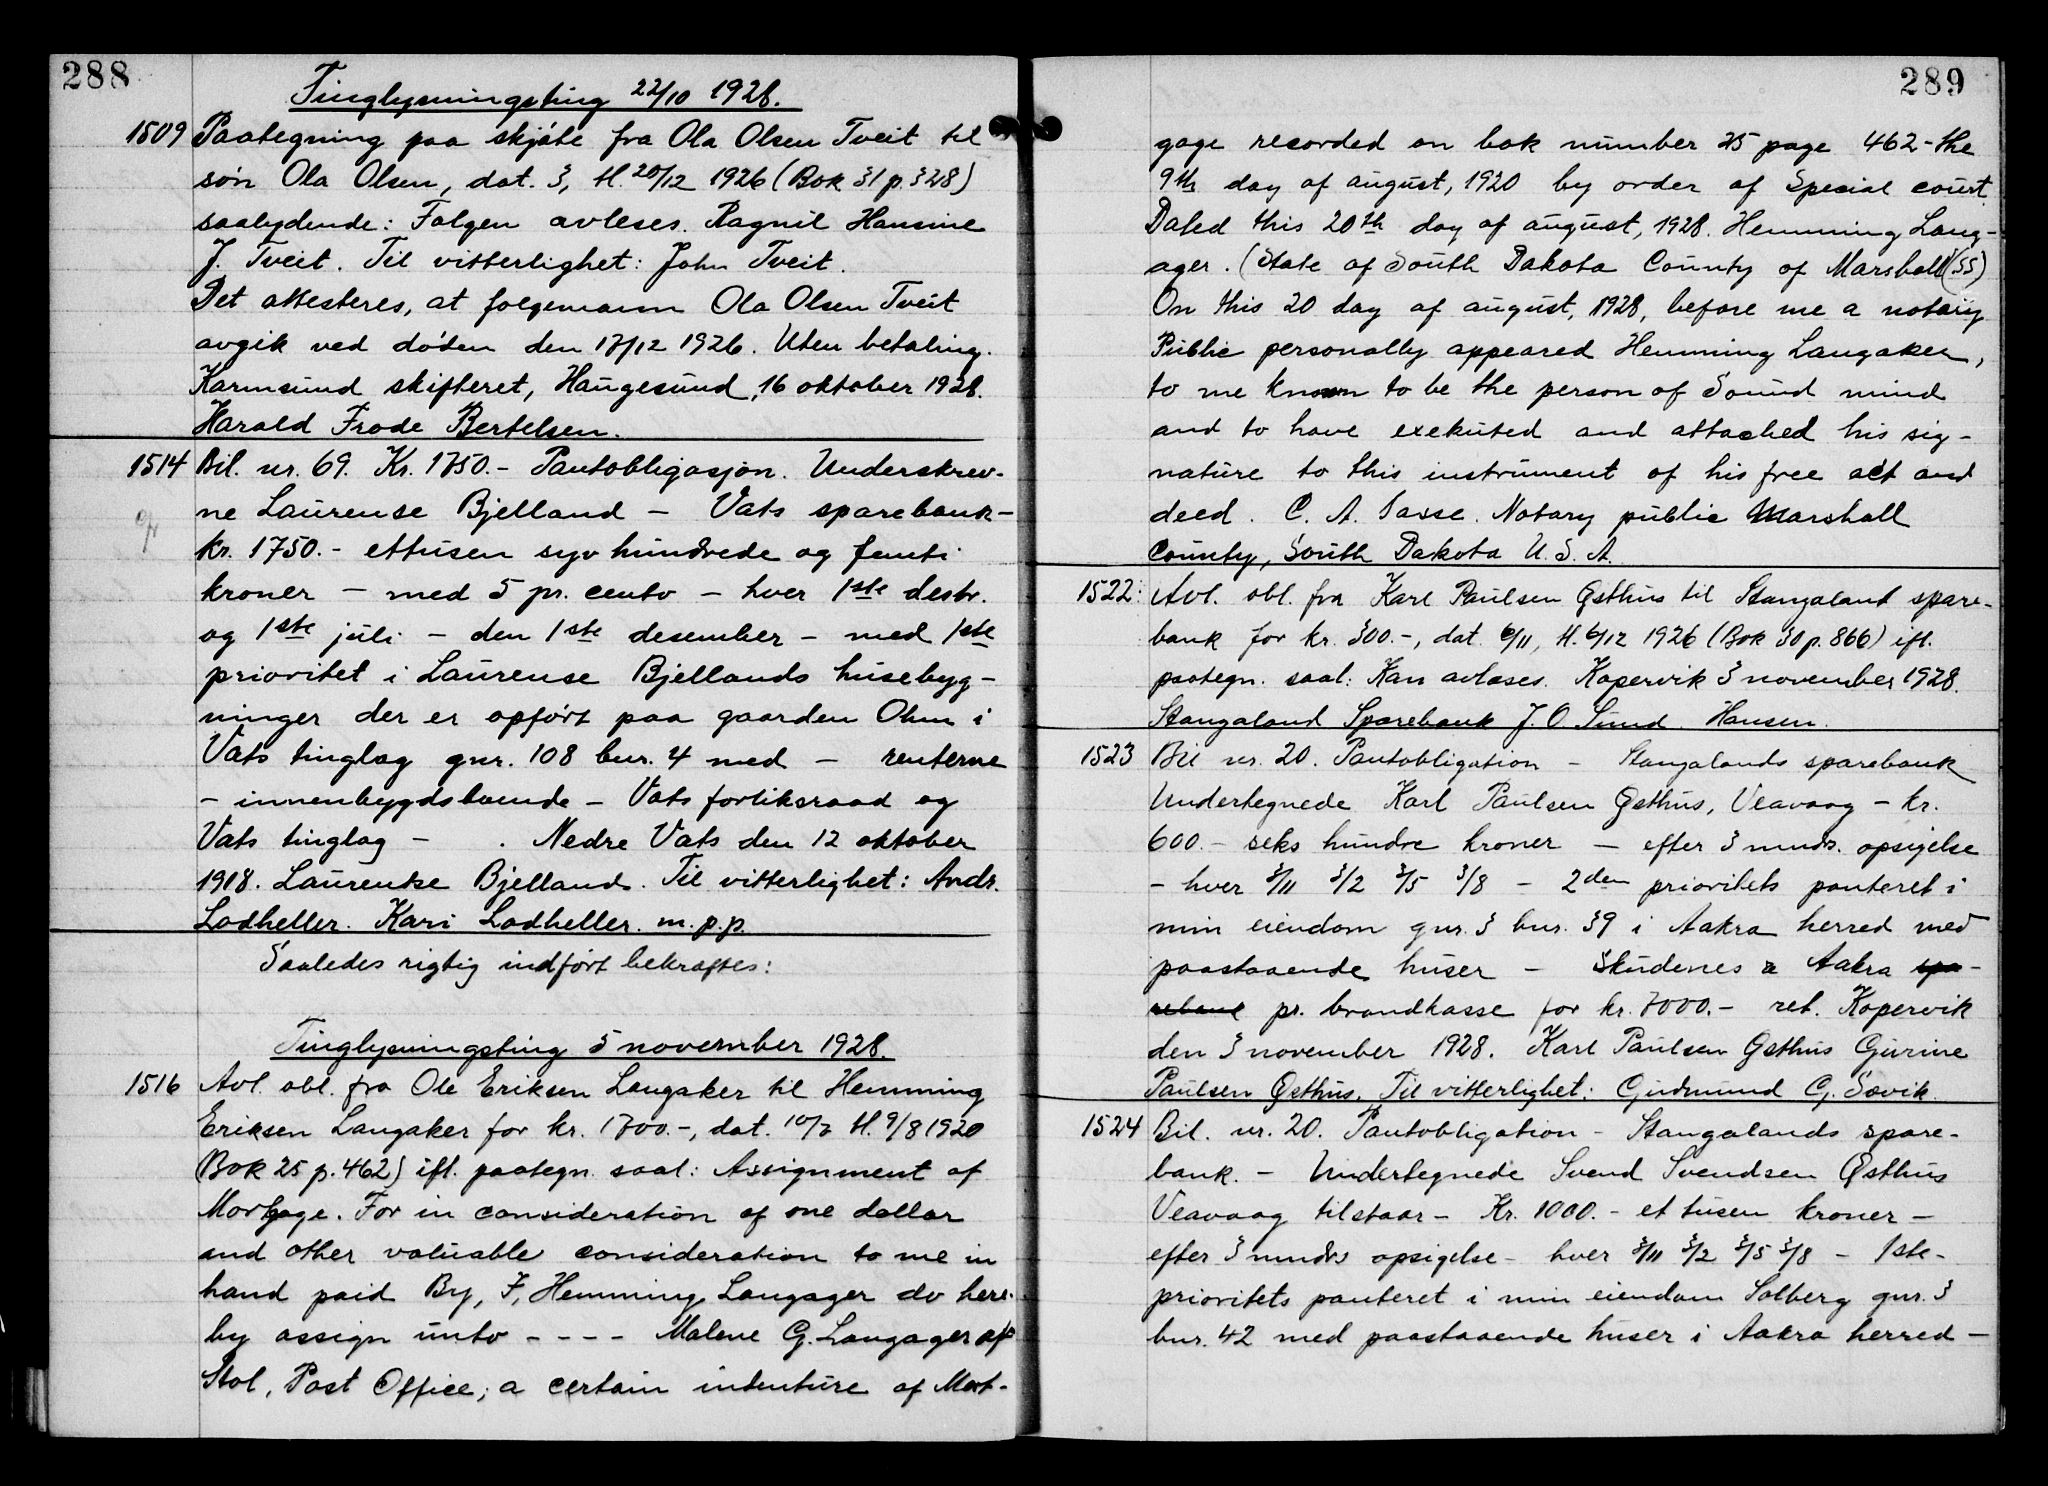 288
Tinglysningsting 22/10 1928.
1509 Paategning paa skjøte fra Ola Olsen Tveit til
søn Ola Olsen, dat. 3, tl. 20/12 1926 (Bok 31 p. 328)
saalydende: Følgen avleses. Ragnil Hansine
J. Tveit. Til vitterlighet: John Tveit.
Det attesteres, at folgemann Ola Olsen Tveit
avgik ved døden den 17/12 1926. Uten betaling.
Karmsund skifteret, Haugesund, 16 oktober 1928.
Harald Frode Bertelsen.
1514 Bil. nr. 69. Kr. 1750.- Pantobligasjon. Underskrev-
ne Laurense Bjelland - Vats sparebank -
kr. 1750.- ettusen syv hundrede og femti
kroner - med 5 pr. cento - hver 1ste desbr.
og 1ste juli - den 1ste desember - med 1ste
prioritet i Laurense Bjellands husebyg-
ninger der er opført paa gaarden Ohm i
Vats tinglag gnr. 108 bnr. 4 med - renterne
- innenbygdsboende - Vats forliksraad og
Vats tinglag - . Nedre Vats den 12 oktober
1918. Laurentse Bjelland. Til vitterlighet: Andr.
Lodheller. Kari Lodheller. m.p.p.
Saaledes rigtig indført bekræftes:
Tinglysningsting 5 november 1928.
1516 Avl. obl. fra Ole Eriksen Langaker til Hemming
Eriksen Langaker for kr. 1700.-, dat. 10/7 tl. 9/8 1920
(Bok 25 p. 462) ifl. paategn. saal: Assignment of
Mortgage. For in consideration of one dollar
and other valuable consideration to me in
hand paid By, F, Hemming Langager do here-
by assign unto - - - - Malene G. Langager of
Stol, Post Office; a certain intenture of Mort-
289
gage recorded on bok number 25 page 462 - the
9th day of august, 1920 by order of Special court.
Dated this 20th day of august, 1928. Hemming Lang-
ager. (State of South Dakota County of Marshall)(SS)
On this 20 day of august, 1928, before me a notary
Public personally appeared Hemming Langaker,
to me known to be the person of Sound mind
and to have exekuted and attached his sig-
nature to this instrument of his free act and
deed. C. A. Sasse. Notary public Marshall
County, South Dakota U. S. A.
1522: Avl. obl. fra Karl Paulsen Østhus til Stangaland spare-
bank for kr. 300.-, dat. 6/11, tl. 6/12 1926 (Bok 30 p. 866) ifl.
paategn. saal: Kan avlæses. Kopervik 3 november 1928.
Stangaland Sparebank J. O. Sund. Hansen.
1523 Bil nr. 20. Pantobligation - Stangalands sparebank
Undertegnede Karl Paulsen Østhus, Veavaag - kr.
600.- seks hundre kroner - efter 3 mndr. opsigelse
- hver 3/11 3/2 3/5 3/8 - 2den prioritets panteret i
min eiendom gnr. 3 bnr. 39 i Aakra herred med
paastaaende huser - Skudenes & Aakra spa-
rebank pr. brandkasse for kr. 7000.- ret. Kopervik
den 3 november 1928. Karl Paulsen Østhus Gurine
Paulsen Østhus. Til vitterlighet: Gudmund G. Sævik.
1524 Bil. nr. 20. Pantobligation - Stangalands spare-
bank. - Undertegnede Svend Svendsen Østhus
Veavaag tilstaar - Kr. 1000.- et tusen kroner -
efter 3 mndrs opsigelse - hver 3/11 3/2 3/5 3/8 - 1ste-
prioritets panteret i min eiendom Solberg gnr. 3
bnr. 42 med paastaaende huser i Aakra herred -